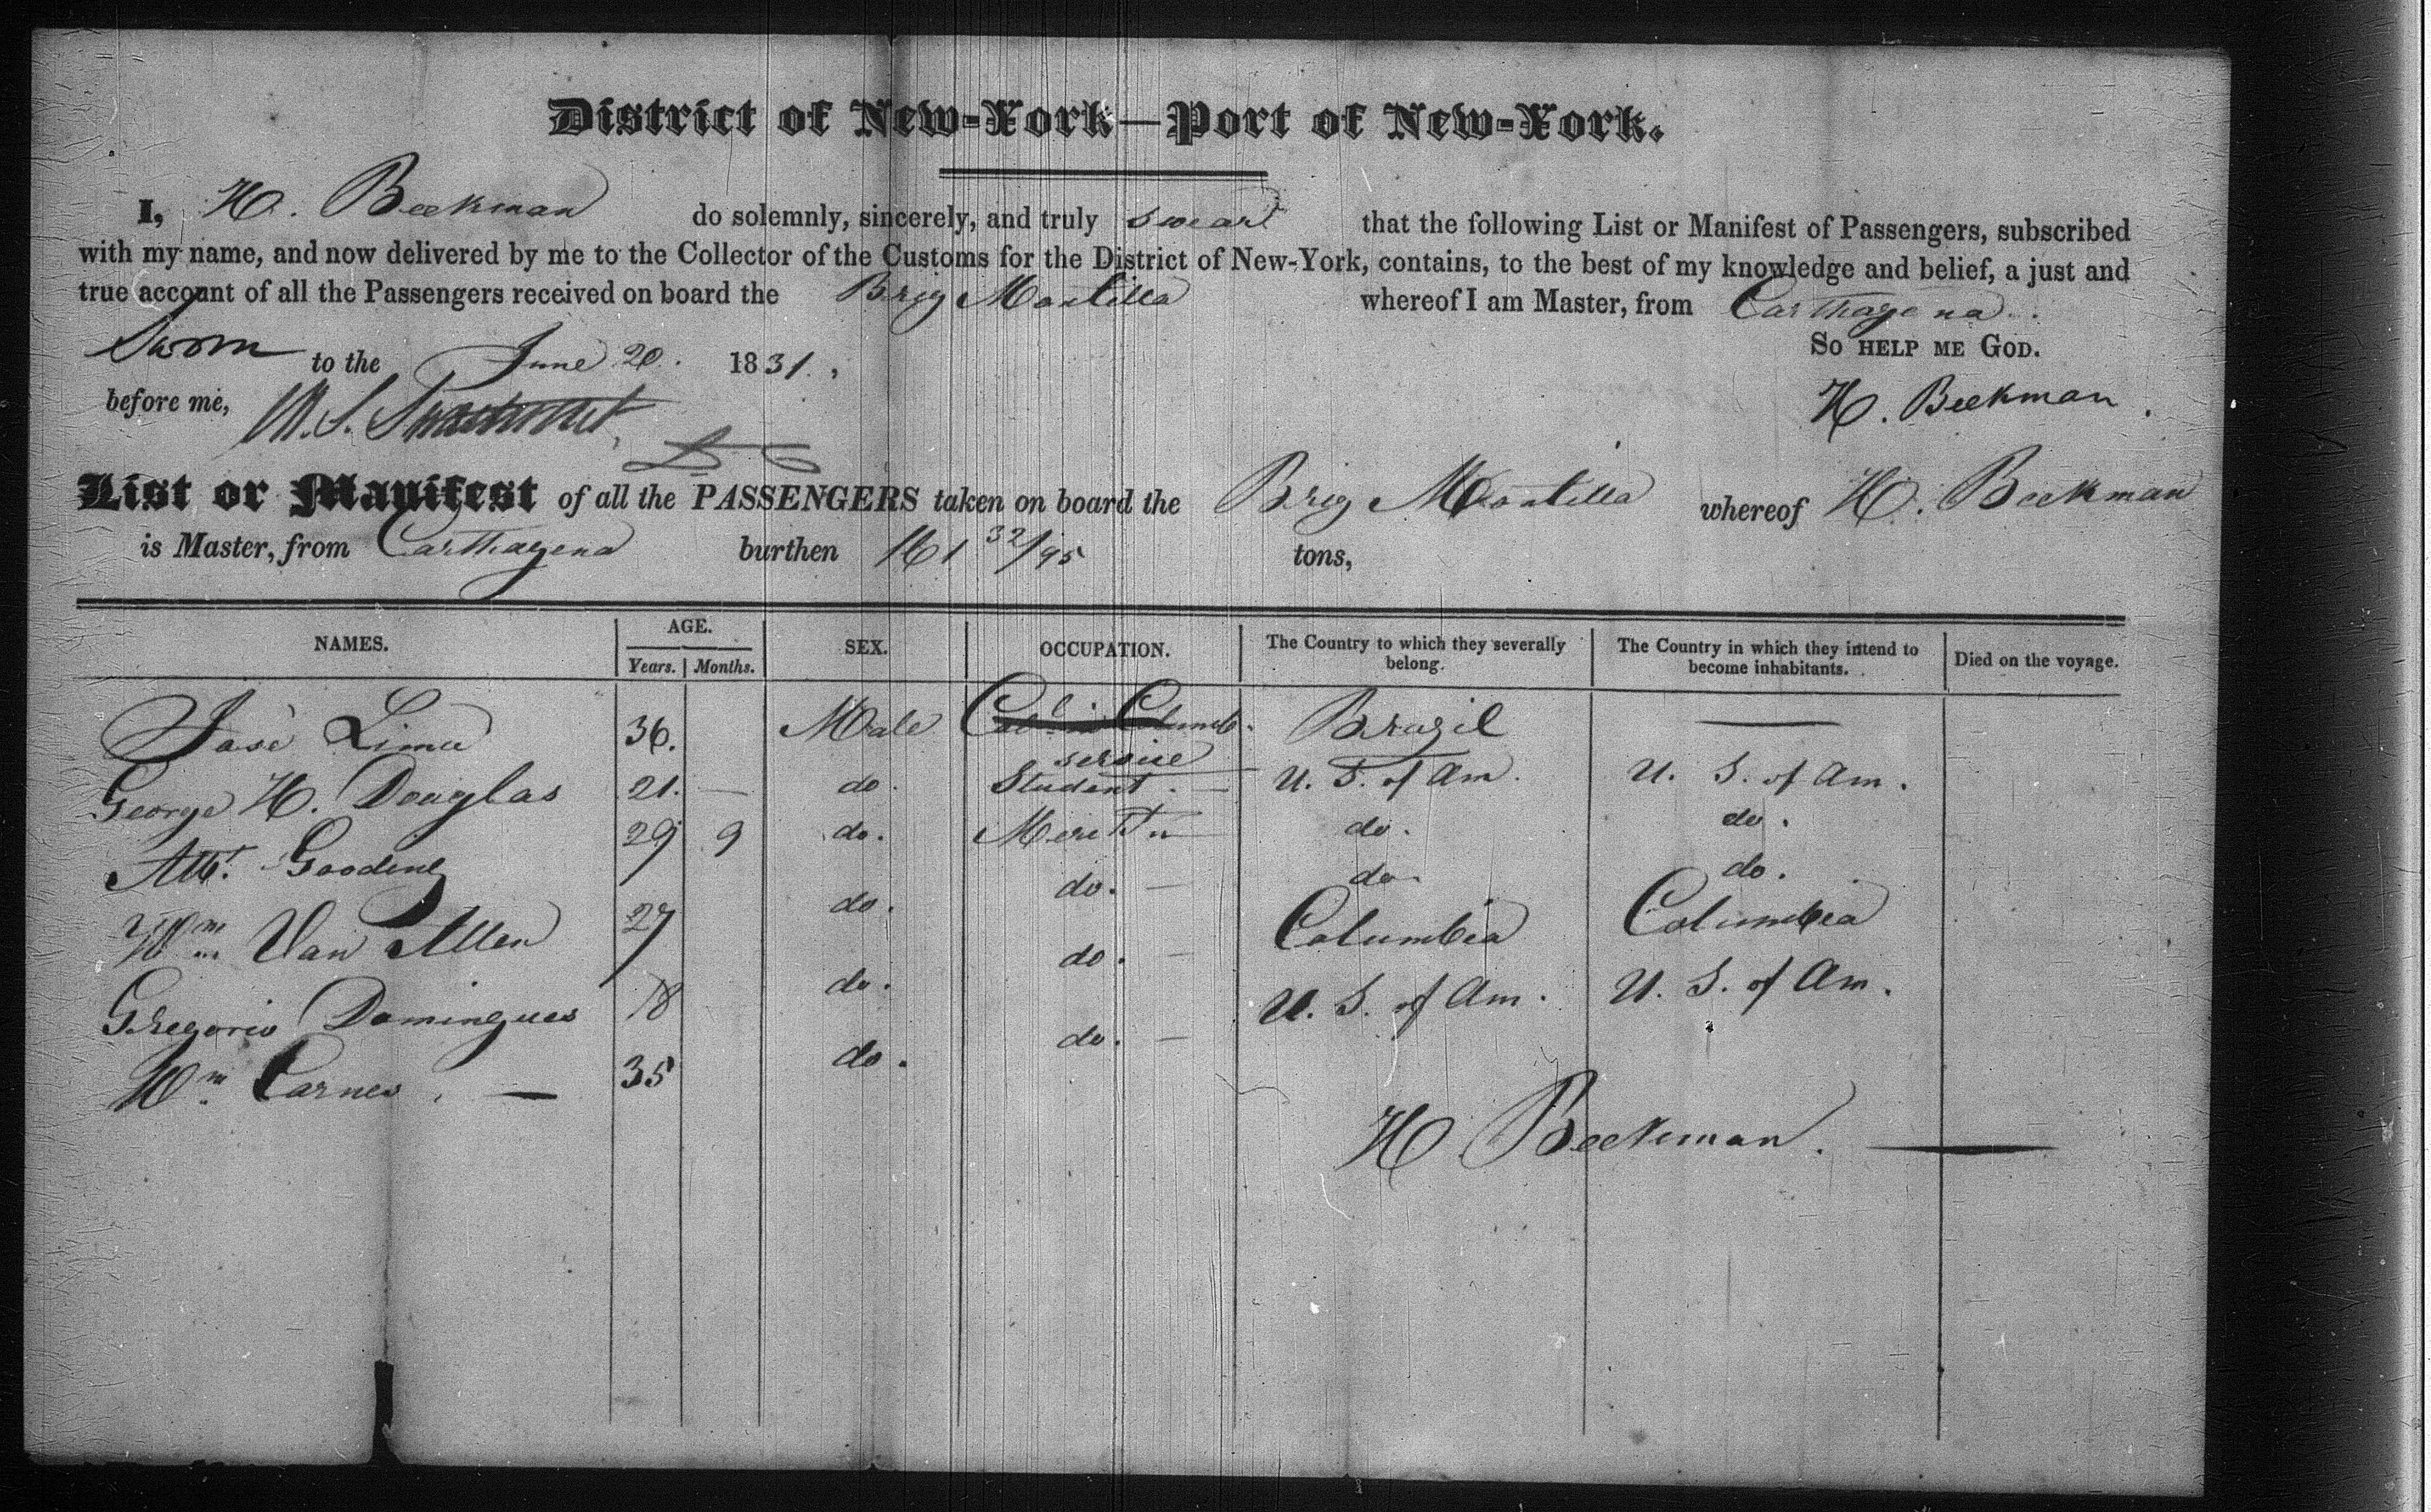 District of New-York—Port of New-York.
I, H. Beekman do solemnly, sincerely, and truly swear that the following List or Manifest of Passengers, subscribed
with my name, and now delivered by me to the Collector of the Customs for the District of New-York, contains, to the best of my knowledge and belief, a just and
true account of all the Passengers received on board the Brig Montilla whereof I am Master, from Carthagena.
Sworn to the June 20. 1831. So HELP ME GOD.
before me, H. Beekman.
List or Manifest of all the PASSENGERS taken on board the Brig Montilla whereof H. Beekman
is Master, from Carthagena burthen 161 32/95 tons,
NAMES. AGE. Years. Months. SEX. OCCUPATION. The Country to which they severally belong. The Country in which they intend to become inhabitants. Died on the voyage.
José Lima 36. Male Col. Columb. service Brazil —
George H. Douglas 21. — do. Student. — U. S. of Am. U. S. of Am.
Albt. Gooding 29 9 do. Mercht. do. do.
Wm Van Allen 27 do. do. — do. do.
Gregorio Domingues 18 do. do. — Columbia Columbia
Wm Carnes. — 35 do. do. — U. S. of Am. U. S. of Am.
H. Beekman.